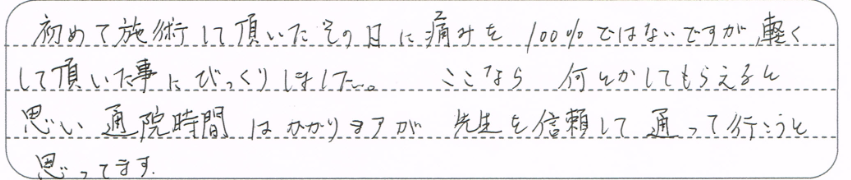 初めて施術して頂いたその日に痛みを100%ではないですが、軽く
して頂いた事にびっくりしました。 ここなら 何とかしてもらえると
思い 通院時間はかかりますが 先生を信頼して 通って行こうと
思ってます.